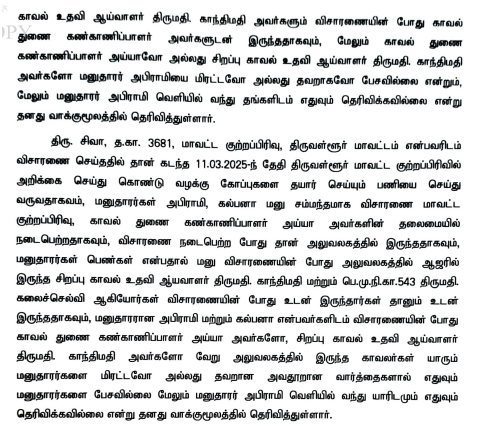 காவல் உதவி ஆய்வாளர் திருமதி. காந்திமதி அவர்களும் விசாரணையின் போது காவல்
துணை கண்காணிப்பாளர் அவர்களுடன் இருந்ததாகவும், மேலும் காவல் துணை
கண்காணிப்பாளர் அய்யாவோ அல்லது சிறப்பு காவல் உதவி ஆய்வாளர் திருமதி. காந்திமதி
அவர்களோ மனுதாரர் அபிராமியை மிரட்டவோ அல்லது தவறாகவோ பேசவில்லை என்றும்,
மேலும் மனுதாரர் அபிராமி வெளியில் வந்து தங்களிடம் எதுவும் தெரிவிக்கவில்லை என்று
தனது வாக்குமூலத்தில் தெரிவித்துள்ளார்.
திரு. சிவா, த.கா. 3681, மாவட்ட குற்றப்பிரிவு, திருவள்ளூர் மாவட்டம் என்பவரிடம்
விசாரணை செய்ததில் தான் கடந்த 11.03.2025-ந் தேதி திருவள்ளூர் மாவட்ட குற்றப்பிரிவில்
அறிக்கை செய்து கொண்டு வழக்கு கோப்புகளை தயார் செய்யும் பணியை செய்து
வருவதாகவம், மனுதாரர்கள் அபிராமி, கல்பனா மனு சம்மந்தமாக விசாரணை மாவட்ட
குற்றப்பிரிவு, காவல் துணை கண்காணிப்பாளர் அய்யா அவர்களின் தலைமையில்
நடைபெற்றதாகவும், விசாரணை நடைபெற்ற போது தான் அலுவலகத்தில் இருந்ததாகவும்,
மனுதாரர்கள் பெண்கள் என்பதால் மனு விசாரணையின் போது அலுவலகத்தில் ஆஜரில்
இருந்த சிறப்பு காவல் உதவி ஆய்வாளர் திருமதி. காந்திமதி மற்றும் பெ.மு.நி.கா.543 திருமதி.
கலைச்செல்வி ஆகியோர்கள் விசாரணையின் போது உடன் இருந்தார்கள் தானும் உடன்
இருந்ததாகவும், மனுதாரரான அபிராமி மற்றும் கல்பனா என்பவர்களிடம் விசாரணையின் போது
காவல் துணை கண்காணிப்பாளர் அய்யா அவர்களோ, சிறப்பு காவல் உதவி ஆய்வாளர்
திருமதி. காந்திமதி அவர்களோ வேறு அலுவலகத்தில் இருந்த காவலர்கள் யாரும்
மனுதாரர்களை மிரட்டவோ அல்லது தவறான அவதூறான வார்த்தைகளால் எதுவும்
மனுதாரர்களை பேசவில்லை மேலும் மனுதாரர் அபிராமி வெளியில் வந்து யாரிடமும் எதுவும்
தெரிவிக்கவில்லை என்று தனது வாக்குமூலத்தில் தெரிவித்துள்ளார்.